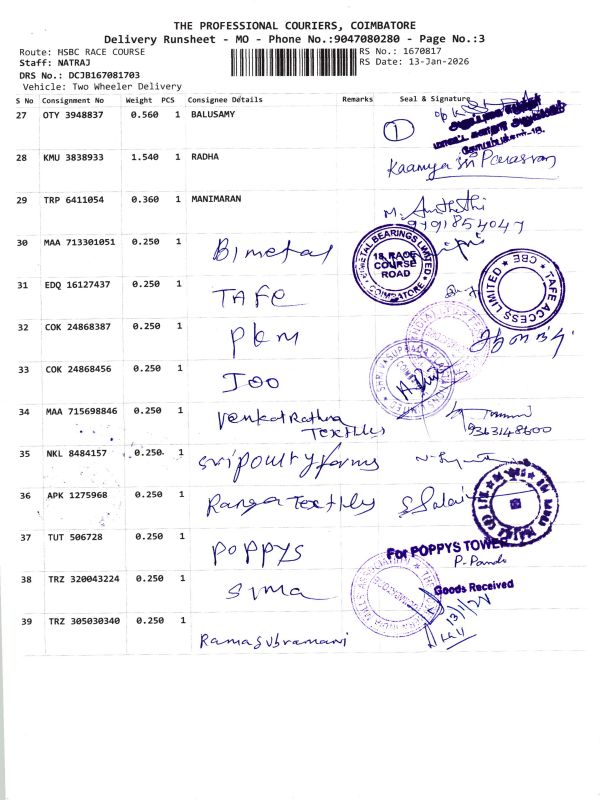 THE PROFESSIONAL COURIERS, COIMBATORE
Delivery Runsheet - MO - Phone No.:9047080280 - Page No.:3
Route: HSBC RACE COURSE RS No.: 1670817
Staff: NATRAJ RS Date: 13-Jan-2026
DRS No.: DCJB167081703
Vehicle: Two Wheeler Delivery
S No Consignment No Weight PCS Consignee Details Remarks Seal & Signature
27 OTY 3948837 0.560 1 BALUSAMY
1
28 KMU 3838933 1.540 1 RADHA
29 TRP 6411054 0.360 1 MANIMARAN
30 MAA 713301051 0.250 1 Bimetal
BIMETAL BEARINGS LIMITED
18, RACE
COURSE
ROAD
COIMBATORE
31 EDQ 16127437 0.250 1 TAFE
TAFE ACCESS LIMITED CBE
32 COK 24868387 0.250 1 PKM
33 COK 24868456 0.250 1 JOO
34 MAA 715698846 0.250 1 Venkat Rathna
Textiles
9363148600
35 NKL 8484157 0.250 1 Sri poultry farms
36 APK 1275968 0.250 1 Ranga Textiles
37 TUT 506728 0.250 1 POPPYS
For POPPYS TOWER
38 TRZ 320043224 0.250 1 SIMA
Goods Received
39 TRZ 305030340 0.250 1 Ramasubramani